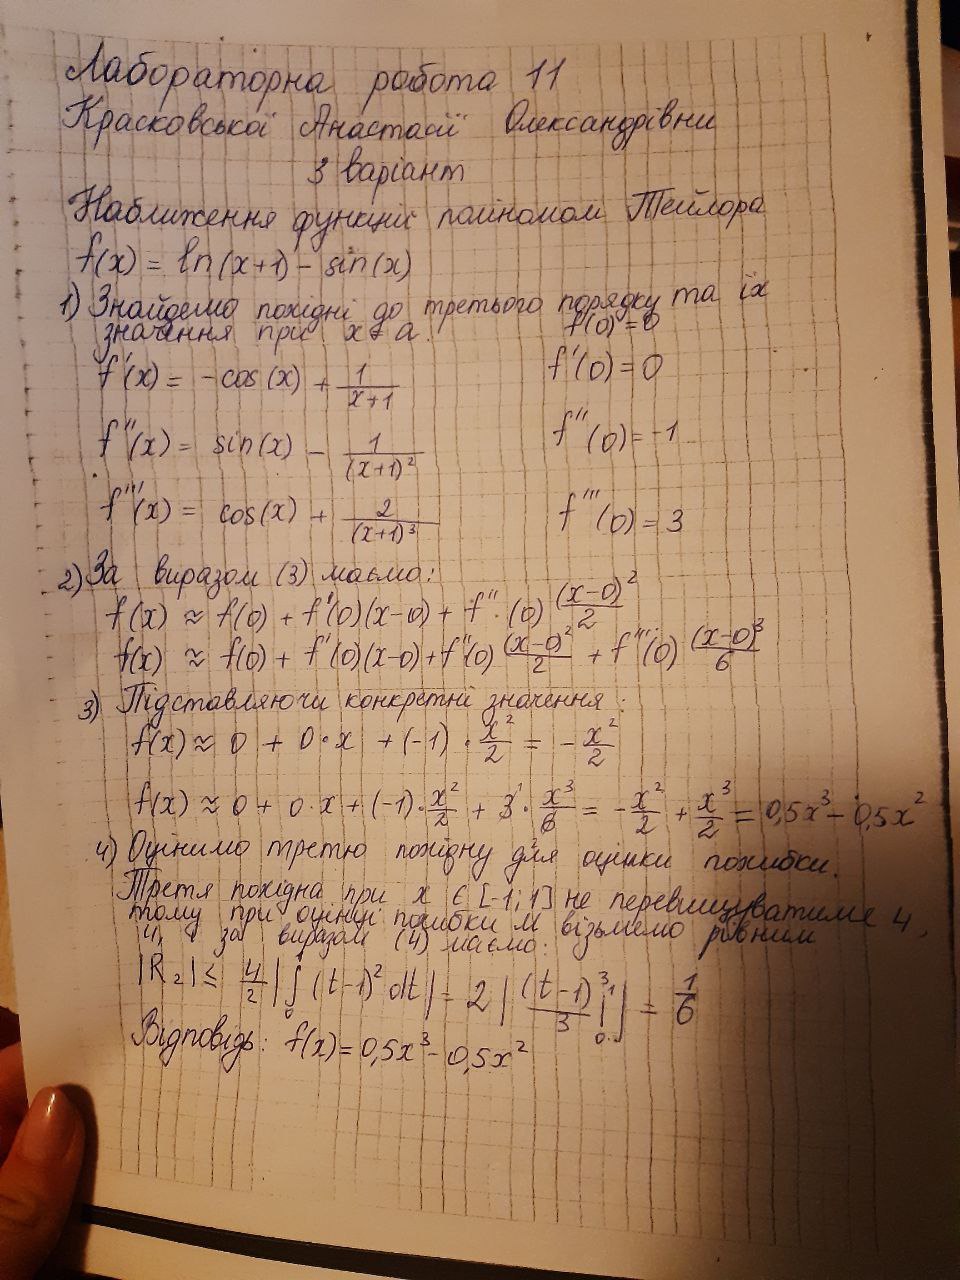 Лабораторна робота 11
Красковської Анастасії Олександрівни
3 варіант
Наближення функції поліномом Тейлора
f(x) = ln(x+1) - sin(x)
1) Знайдемо похідні до третього порядку та їх
значення при x = a. f(0) = 0
f'(x) = -cos(x) + 1/(x+1) f'(0) = 0
f''(x) = sin(x) - 1/(x+1)² f''(0) = -1
f'''(x) = cos(x) + 2/(x+1)³ f'''(0) = 3
2) За виразом (3) маємо:
f(x) ≈ f(0) + f'(0)(x-0) + f''·(0) (x-0)²/2
f(x) ≈ f(0) + f'(0)(x-0) + f''(0) (x-0)²/2 + f'''(0) (x-0)³/6
3) Підставляючи конкретні значення:
f(x) ≈ 0 + 0·x + (-1)·x²/2 = -x²/2
f(x) ≈ 0 + 0·x + (-1)·x²/2 + 3·x³/6 = -x²/2 + x³/2 = 0,5x³ - 0,5x²
4) Оцінимо третю похідну для оцінки похибки.
Третя похідна при x ∈ [-1; 1] не перевищуватиме 4,
тому при оцінці похибки M візьмемо рівним
4, і за виразом (4) маємо:
|R₂| ≤ 4/2 |∫₀¹ (t-1)² dt| = 2 |(t-1)³/3 |₀¹| = 1/6
Відповідь: f(x) = 0,5x³ - 0,5x²